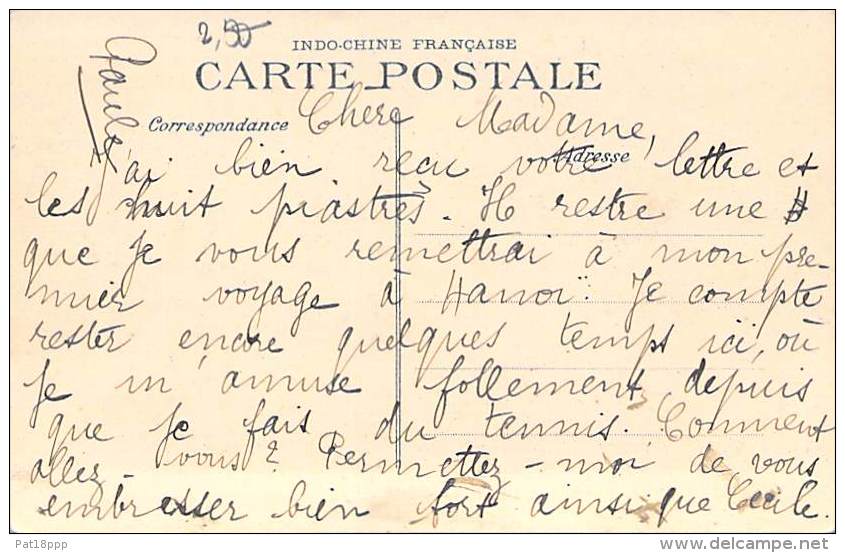 2,50
INDO-CHINE FRANÇAISE
CARTE POSTALE
Correspondance
Adresse
Chere Madame,
J'ai bien reçu votre lettre et
les huit piastres. Il restre une $
que je vous remettrai à mon pre-
mier voyage à Hanoï. Je compte
rester encore quelques temps ici, où
je m'amuse follement, depuis
que je fais du tennis. Comment
allez-vous? Permettez-moi de vous
embrasser bien fort ainsi que Cecile.
Pat18ppp
delcampe.net